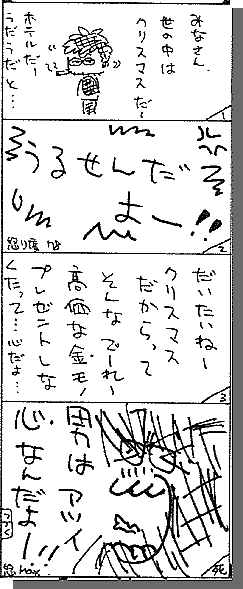 みなさん、
世の中は
クリスマスだー
ホテルだー
うだうだと…
1
うるせんだ
よー!!
怒り度
2
だいたいねー
クリスマス
だからって
そんなでーれー
高価な金モノ
プレゼントしな
くたって…心だよ…
3
男はアツイ
心なんだよー!!
つづく
怒 Max
死